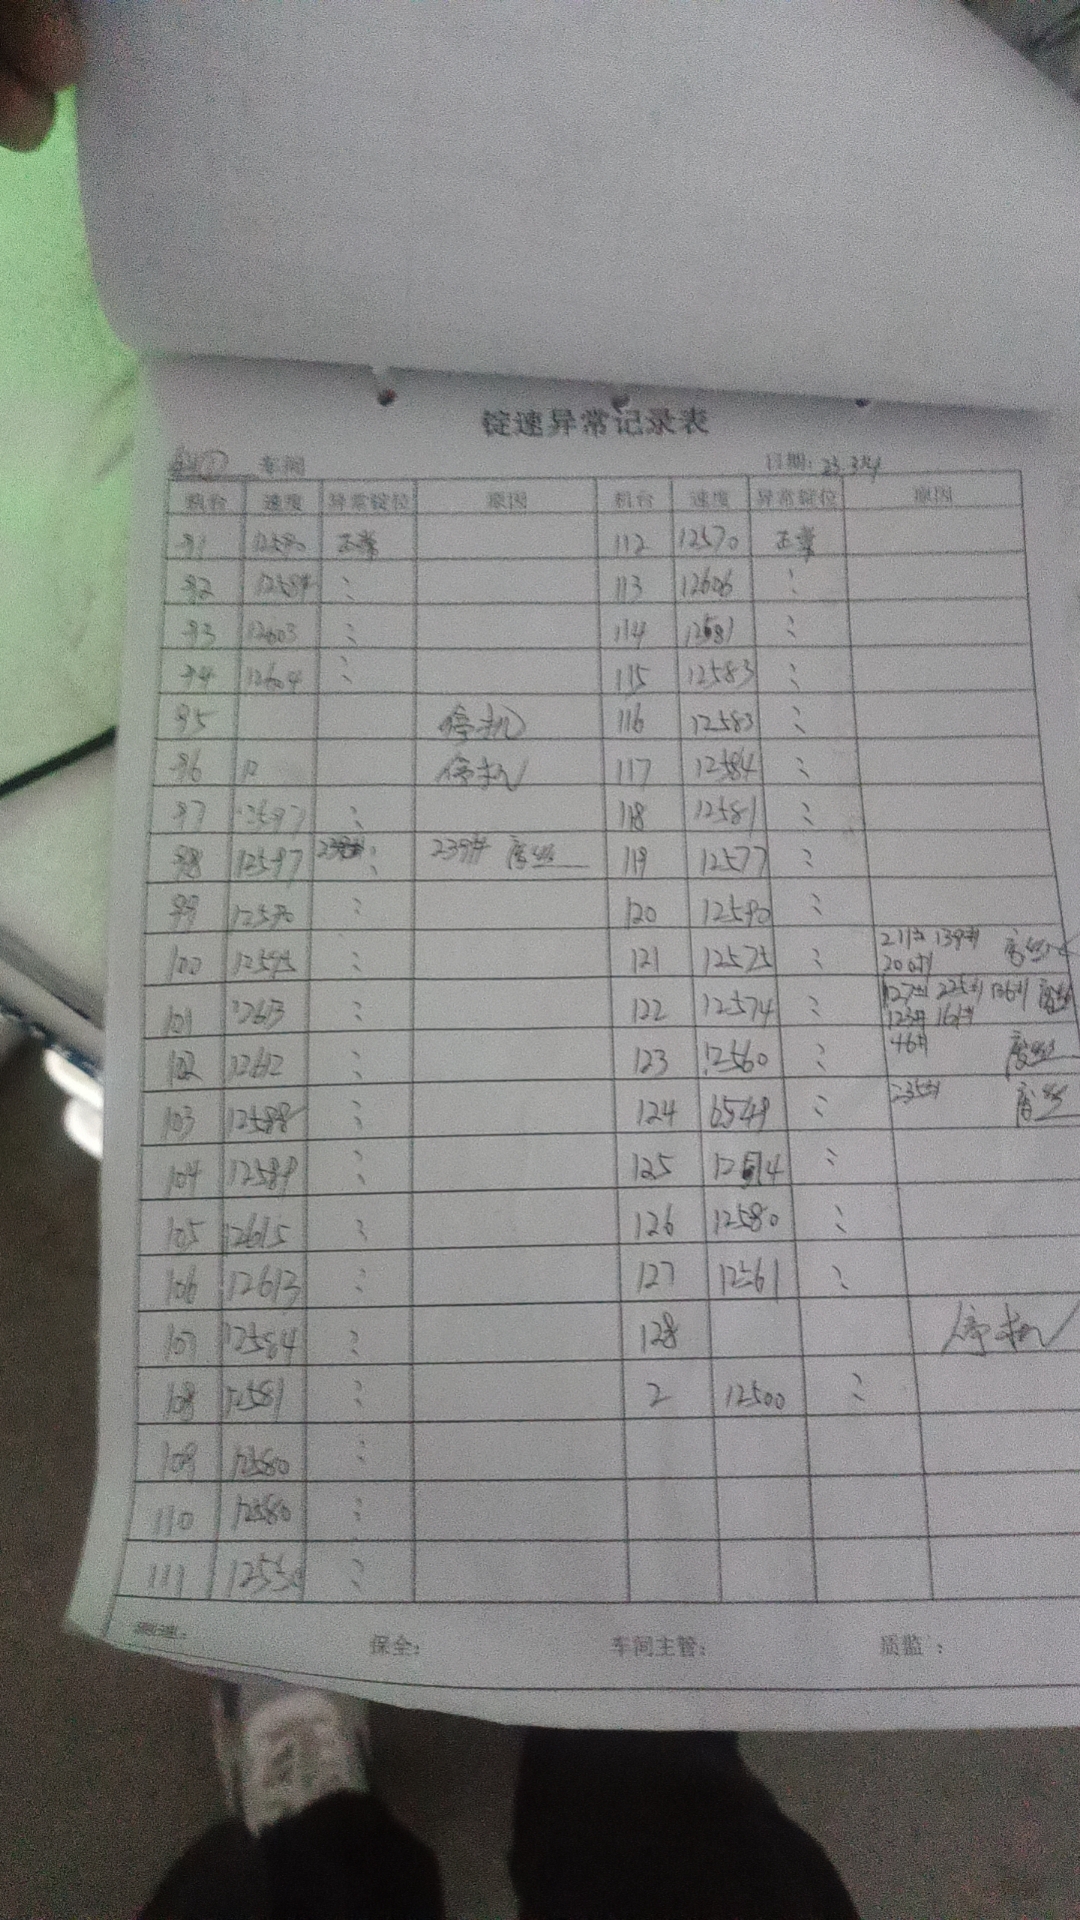 锭速异常记录表
车间 日期: 23.
机台 速度 异常锭位 原因 机台 速度 异常锭位 原因
91 12580 正常 112 12570 正常
92 : 113 12606 :
93 12603 : 114 12581 :
94 12604 : 115 12583 :
95 停机 116 12583 :
96 停机 117 12584 :
97 12597 : 118 12581 :
98 12597 : 239# 废丝 119 12577 :
99 12590 : 120 12590 :
100 12595 : 121 12575 : 211# 139# 200# 废丝
101 12613 : 122 12574 : 127# 225# 136# 废丝 123# 161#
102 12612 : 123 12560 : 46# 废丝
103 12588 : 124 6549 : 235# 废丝
104 12589 : 125 :
105 12615 : 126 12580 :
106 12613 : 127 12561 :
107 12584 : 128 停机
108 12581 : 2 12500 :
109 12580 :
110 12580 :
111 :
测速: 保全: 车间主管: 质监: